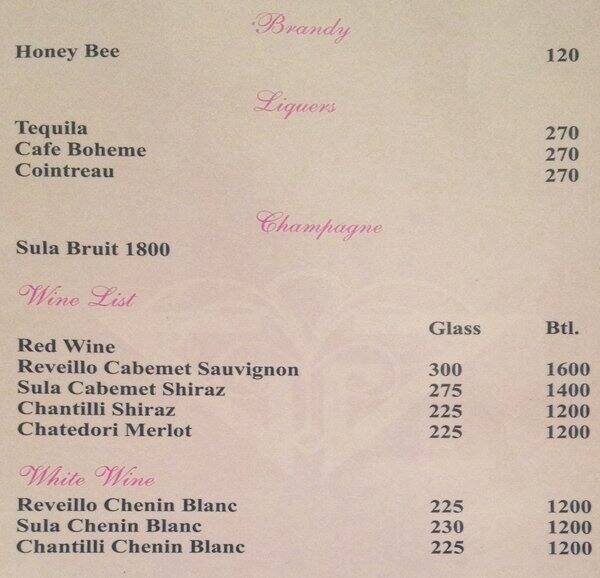 Brandy
Honey Bee 120
Liquers
Tequila 270
Cafe Boheme 270
Cointreau 270
Champagne
Sula Bruit 1800
Wine List
Glass Btl.
Red Wine
Reveillo Cabemet Sauvignon 300 1600
Sula Cabemet Shiraz 275 1400
Chantilli Shiraz 225 1200
Chatedori Merlot 225 1200
White Wine
Reveillo Chenin Blanc 225 1200
Sula Chenin Blanc 230 1200
Chantilli Chenin Blanc 225 1200